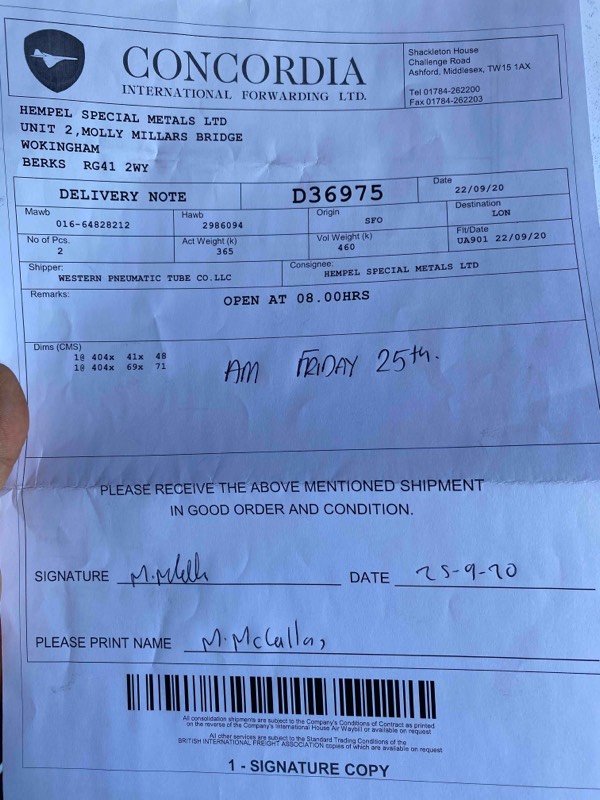 CONCORDIA
INTERNATIONAL FORWARDING LTD.
Shackleton House
Challenge Road
Ashford, Middlesex, TW15 1AX
Tel 01784-262200
Fax 01784-262203
HEMPEL SPECIAL METALS LTD
UNIT 2,MOLLY MILLARS BRIDGE
WOKINGHAM
BERKS RG41 2WY
DELIVERY NOTE
D36975
Date
22/09/20
Mawb
016-64828212
Hawb
2986094
Origin
SFO
Destination
LON
No of Pcs.
2
Act Weight (k)
365
Vol Weight (k)
460
Flt/Date
UA901 22/09/20
Shipper:
WESTERN PNEUMATIC TUBE CO.LLC
Consignee:
HEMPEL SPECIAL METALS LTD
Remarks:
OPEN AT 08.00HRS
Dims (CMS)
1@ 404x 41x 48
1@ 404x 69x 71
AM FRIDAY 25th.
PLEASE RECEIVE THE ABOVE MENTIONED SHIPMENT
IN GOOD ORDER AND CONDITION.
SIGNATURE
DATE 25-9-20
PLEASE PRINT NAME M.
All consolidation shipments are subject to the Company's Conditions of Contract as printed
on the reverse of the Company's International House Air Waybill or available on request
All other services are subject to the Standard Trading Conditions of the
BRITISH INTERNATIONAL FREIGHT ASSOCIATION copies of which are available on request
1 - SIGNATURE COPY